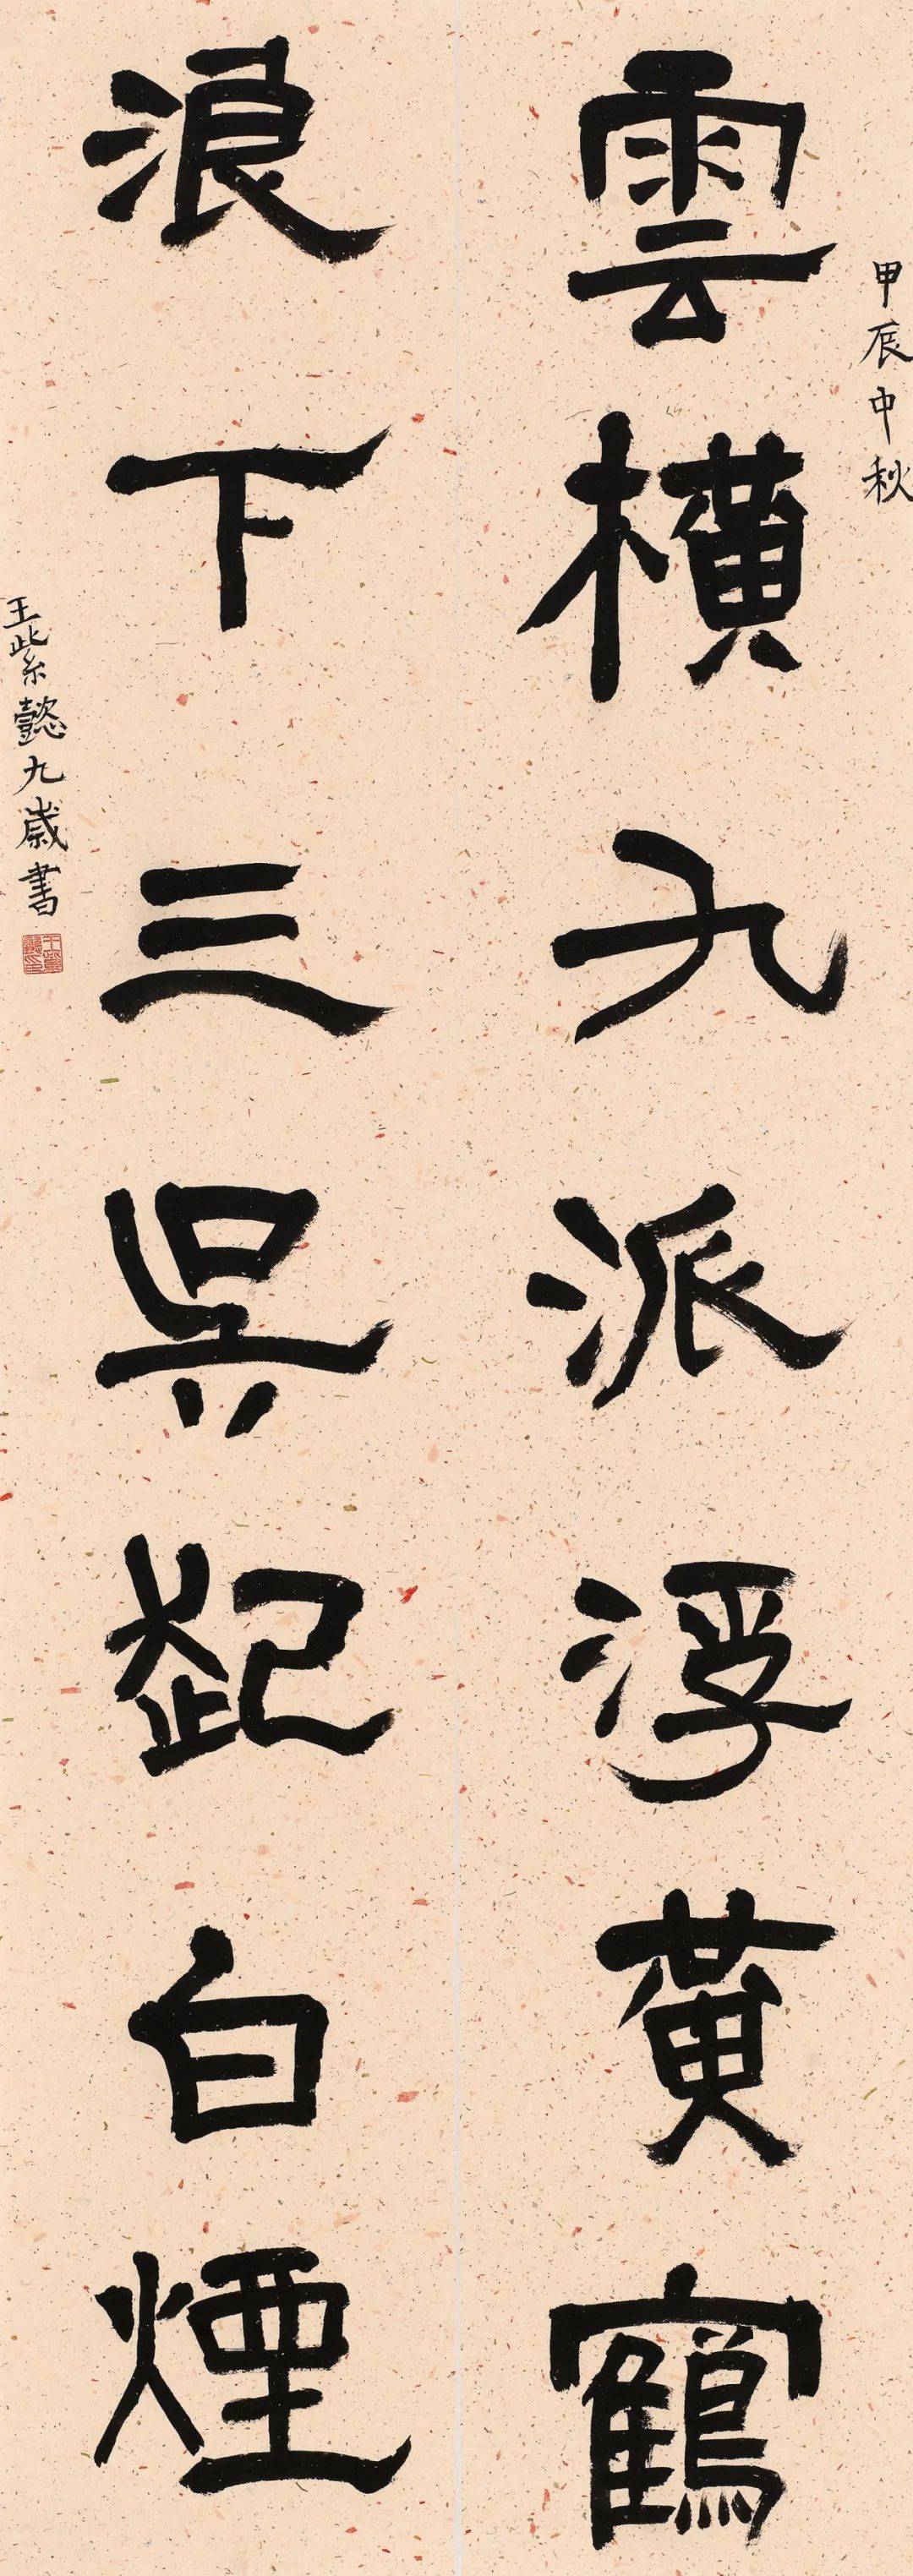 甲辰中秋
雲橫九派浮黃鶴
浪下三吳起白煙
王紫懿九歲書